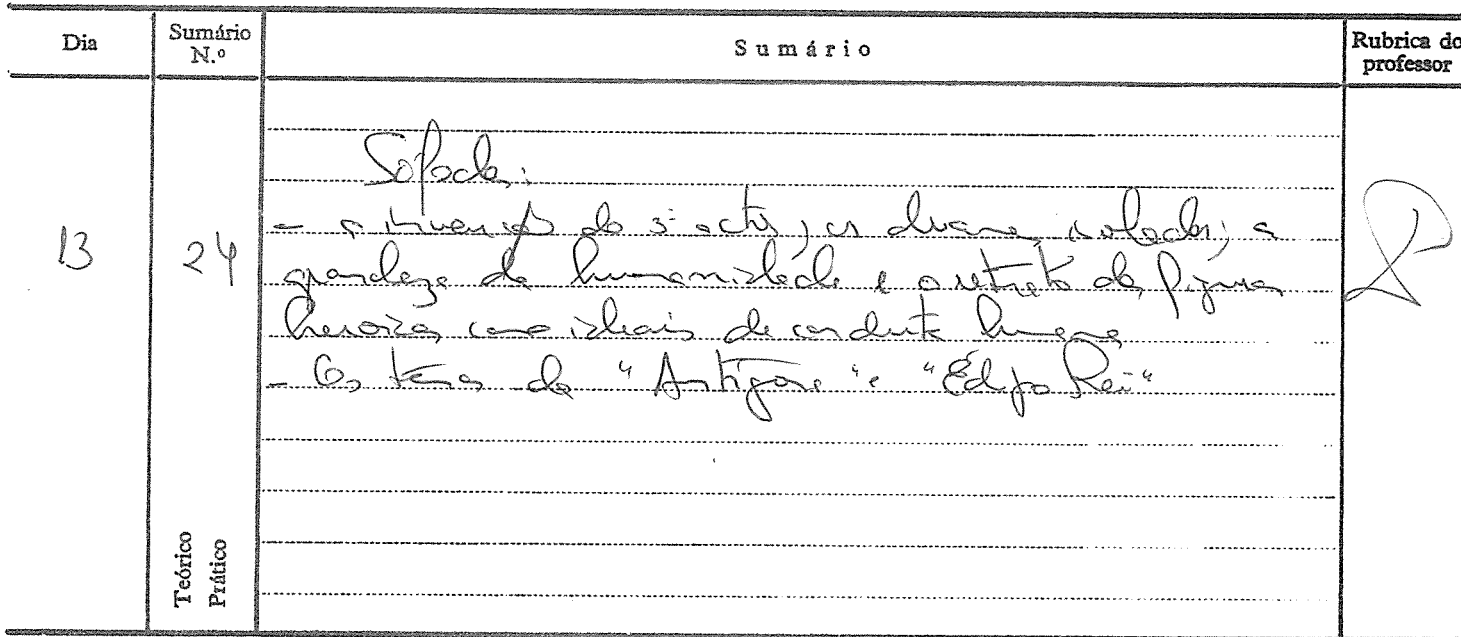 Dia
Sumário N.º
Sumário
Rubrica do professor
Sófocles:
13
24
- a invenção do 3º actor, os dramas isolados; a
grandeza da humanidade e o retrato das figuras
heroicas como ideais de conduta humana
- Os temas da "Antígona" e "Édipo Rei"
Teórico
Prático